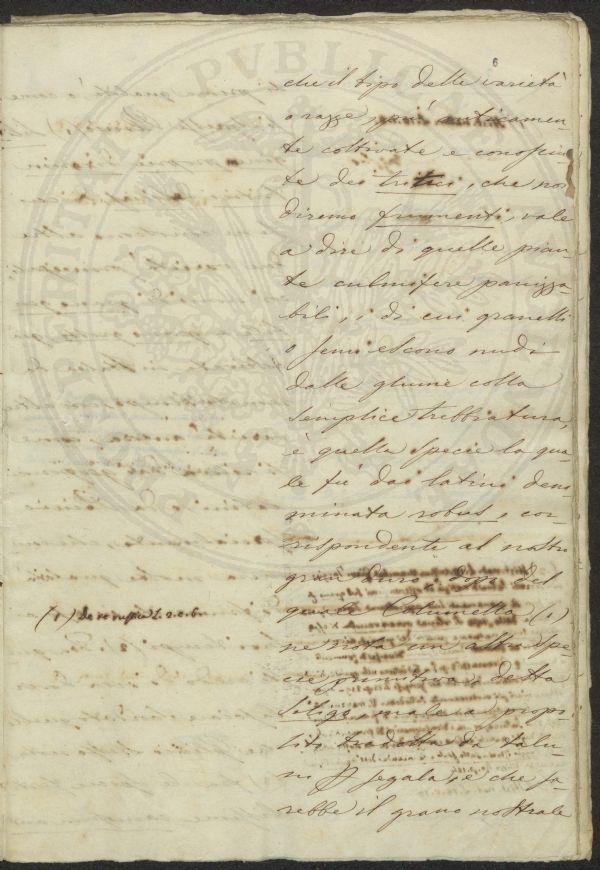 6
che il tipo delle varietà
o razze, più anticamen-
te coltivate e conosciu-
te dei tritici, che noi
diremo frumenti, vale
a dire di quelle pian-
te culmifere panizza-
bili, i di cui granelli
o semi escono nudi
dalle glume colla
semplice trebbiatura,
è quella specie la qua-
le fù dai latini deno-
minata robus, cor-
rispondente al nostro
gran duro, dopo del
quale Columella (1)
ne nota un altra spe-
cie primitiva, detta
Siligo, male a propo-
sito tradotta da talu-
ni p segala, e che sa-
rebbe il grano nostrale
(1) De re rustica L. 2. c. 6.
PROSPERITATI PUBLICAE